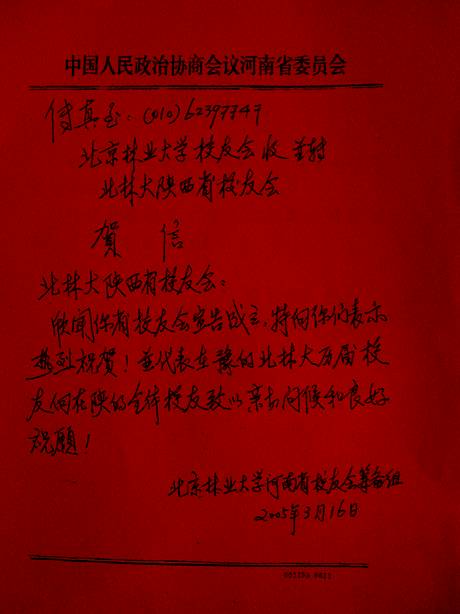 中国人民政治协商会议河南省委员会
传真至：(010)62397747
北京林业大学校友会收 并转
北林大陕西省校友会
贺 信
北林大陕西省校友会：
欣闻你省校友会宣告成立，特向你们表示
热烈祝贺！并代表在豫的北林大历届校
友向在陕的全体校友致以亲切问候和良好
祝愿！
北京林业大学河南省校友会筹备组
2005年3月16日